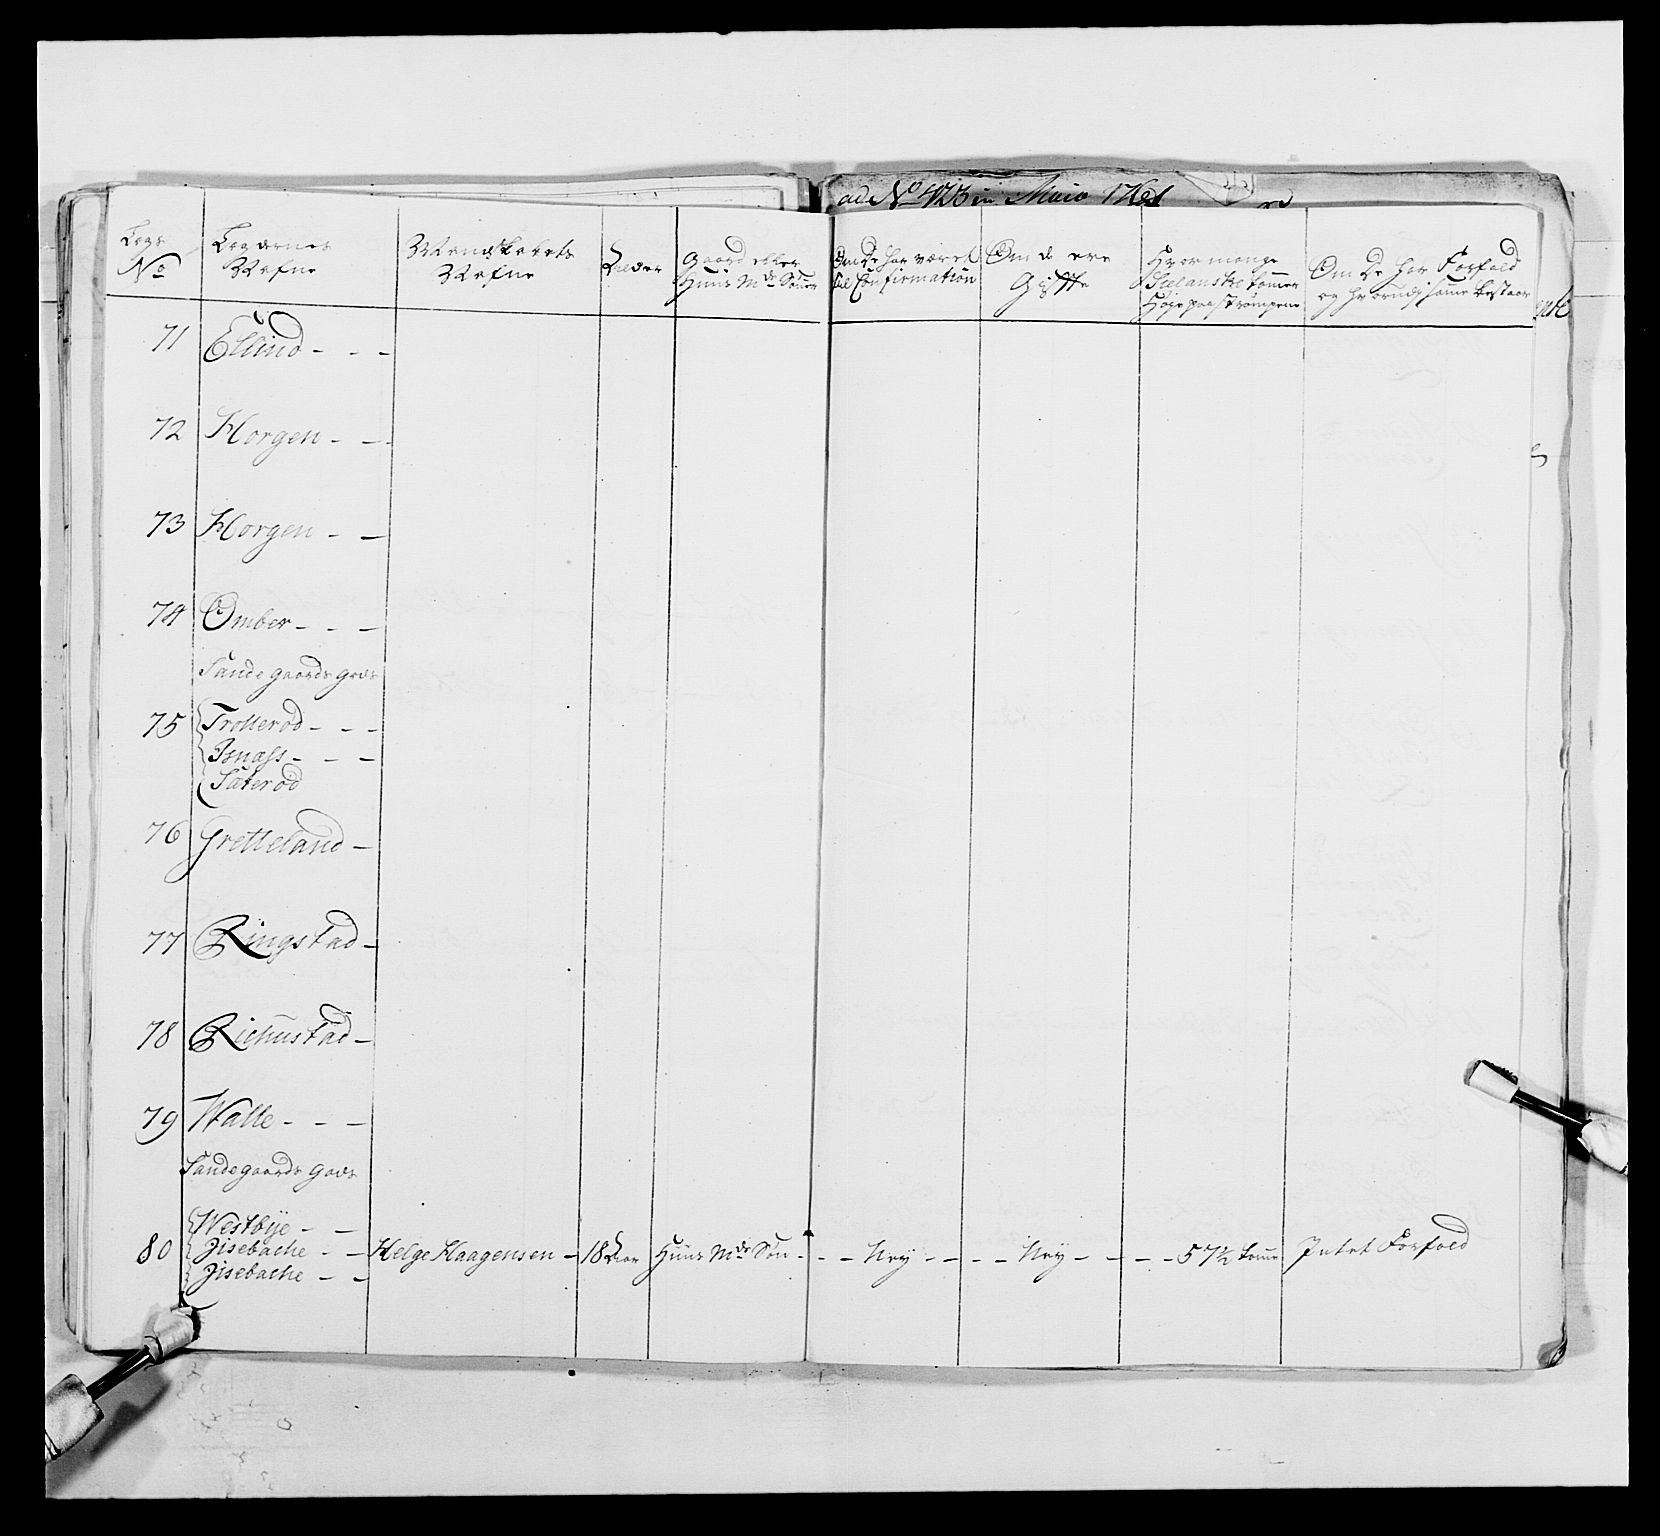 ad No 423 in Maio 1761
Legs No
Legdernes Nafne
Mandskabets Nafne
Alder
Gaard eller Huus Mds Sönner
Om De har været til Confirmation
Om de ere Gifte
Hvor mange Sielanske tommer Høje paa strømpene
Om De har Forfald og hvorudj samme bestaar
71 Ellind - - -
72 Horgen - -
73 Horgen - -
74 Omber - - -
Sande gaards gods
75 Trollerød - - -
Isnass - - -
Säterød
76 Gretteland -
77 Ringstad -
78 Richustad -
79 Walle - - -
Sandegaards Gods
Westbÿe - -
80 Jisebache - - Helge Haagensen - 18 Aar Huus Mds Søn - - - Neÿ - - - - Neÿ - - - - 57½ tome Intet Forfald
Jisebache - -